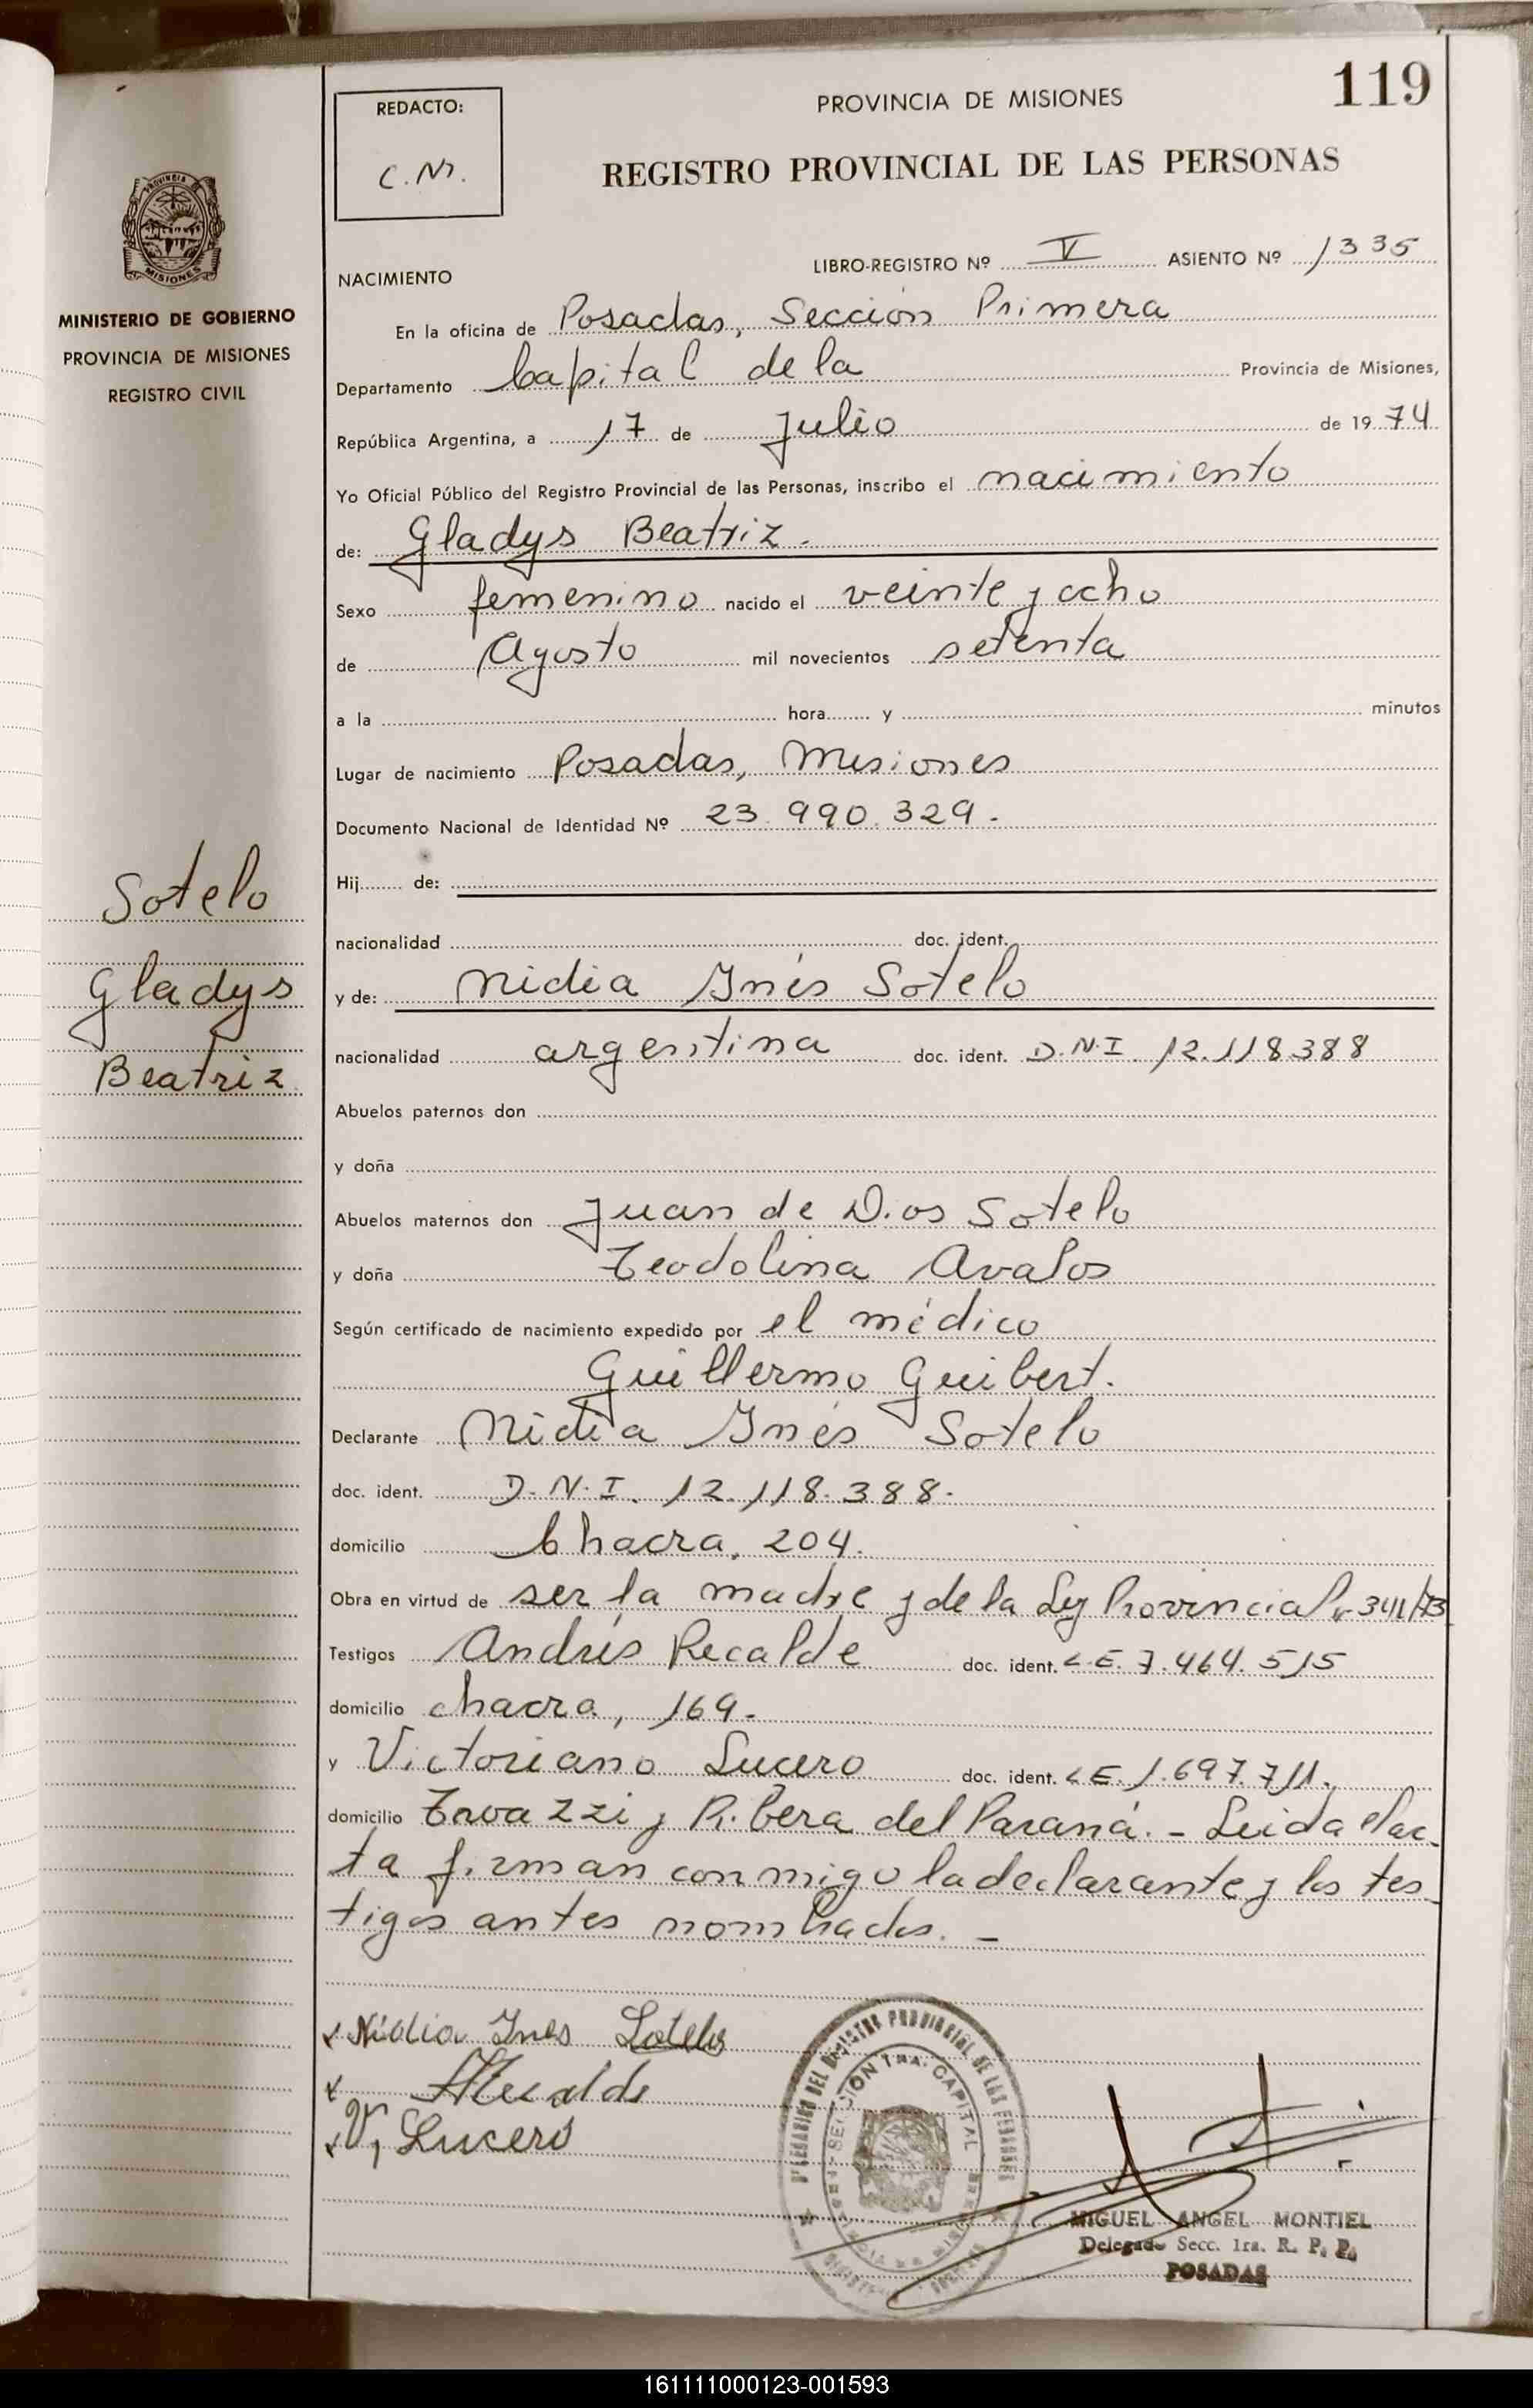 119
REDACTO:
C. M.
PROVINCIA DE MISIONES
REGISTRO PROVINCIAL DE LAS PERSONAS
PROVINCIA DE
MISIONES
MINISTERIO DE GOBIERNO
PROVINCIA DE MISIONES
REGISTRO CIVIL
Sotelo
Gladys
Beatriz
NACIMIENTO LIBRO-REGISTRO Nº V ASIENTO Nº 1335
En la oficina de Posadas, Sección Primera
Departamento Capital de la Provincia de Misiones,
República Argentina, a 17 de Julio de 1974
Yo Oficial Público del Registro Provincial de las Personas, inscribo el nacimiento
de: Gladys Beatriz.
Sexo femenino nacido el veinte y ocho
de Agosto mil novecientos setenta
a la hora y minutos
Lugar de nacimiento Posadas, Misiones
Documento Nacional de Identidad Nº 23.990.329.
Hij de:
nacionalidad doc. ident.
y de: Nidia Inés Sotelo
nacionalidad argentina doc. ident. D.N.I. 12.118388
Abuelos paternos don
y doña
Abuelos maternos don Juan de Dios Sotelo
y doña Teodolina Avalos
Según certificado de nacimiento expedido por el médico
Guillermo Guibert.
Declarante Nidia Inés Sotelo
doc. ident. D.N.I. 12.118.388.
domicilio Chacra, 204.
Obra en virtud de ser la madre y de la Ley Provincial Nº 341/73
Testigos Andrés Recalde doc. ident. L.E. 7.464.515
domicilio chacra, 169.
y Victoriano Lucero doc. ident. L.E. 1.697.711.
domicilio y Ribera del Paraná. - Leida el ac-
ta firman conmigo la declarante y los tes-
tigos antes nombrados. -
x Nidia Ines Sotelo
x ARecalde
x V, Lucero
SECCION 1RA. CAPITAL
MIGUEL ANGEL MONTIEL
Delegado Secc. 1ra. R. P. P.
POSADAS
161111000123-001593